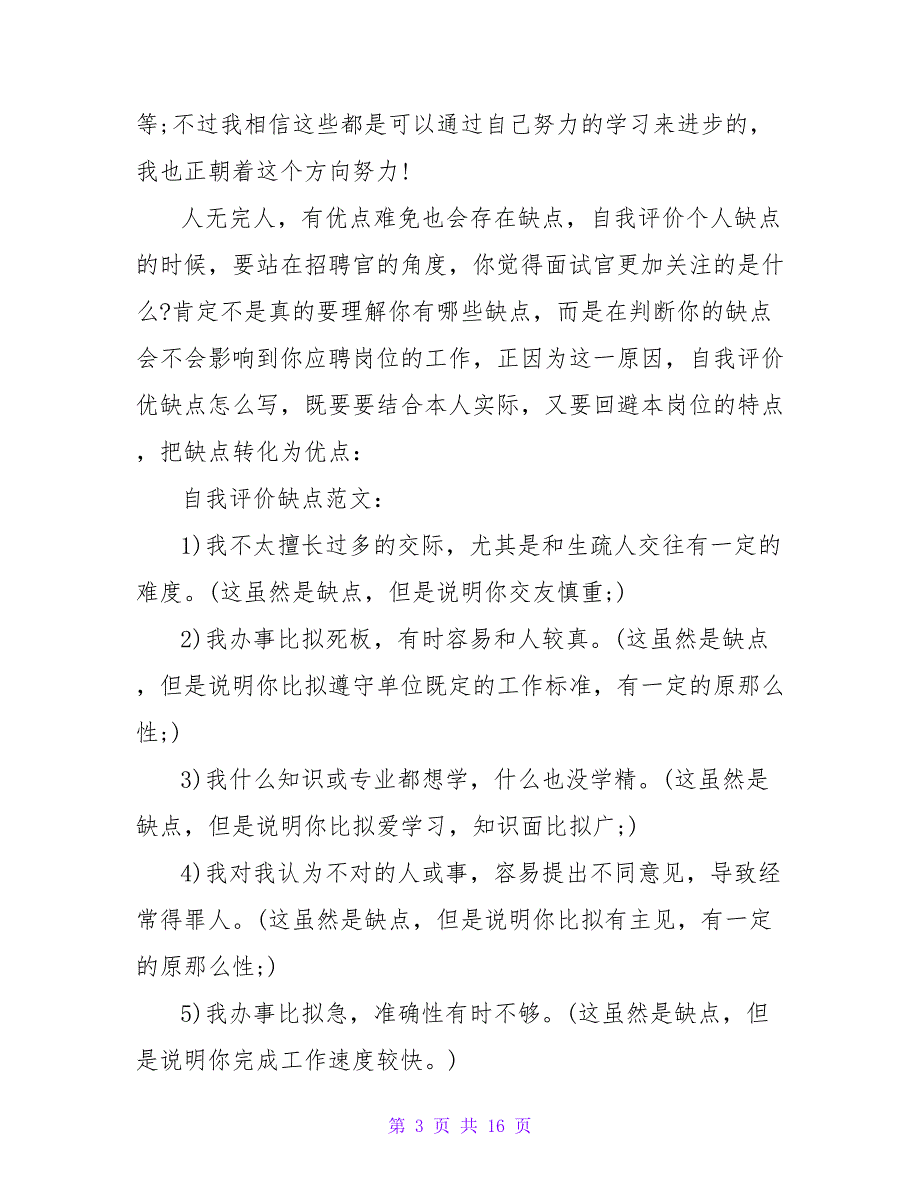 等;不过我相信这些都是可以通过自己努力的学习来进步的，
我也正朝着这个方向努力!
人无完人，有优点难免也会存在缺点，自我评价个人缺点
的时候，要站在招聘官的角度，你觉得面试官更加关注的是什
么?肯定不是真的要理解你有哪些缺点，而是在判断你的缺点
会不会影响到你应聘岗位的工作，正因为这一原因，自我评价
优缺点怎么写，既要要结合本人实际，又要回避本岗位的特点
，把缺点转化为优点：
自我评价缺点范文：
1)我不太擅长过多的交际，尤其是和生疏人交往有一定的
难度。(这虽然是缺点，但是说明你交友慎重;)
2)我办事比拟死板，有时容易和人较真。(这虽然是缺点
，但是说明你比拟遵守单位既定的工作标准，有一定的原那么
性;)
3)我什么知识或专业都想学，什么也没学精。(这虽然是
缺点，但是说明你比拟爱学习，知识面比拟广;)
4)我对我认为不对的人或事，容易提出不同意见，导致经
常得罪人。(这虽然是缺点，但是说明你比拟有主见，有一定
的原那么性;)
5)我办事比拟急，准确性有时不够。(这虽然是缺点，但
是说明你完成工作速度较快。)
第 3 页 共 16 页